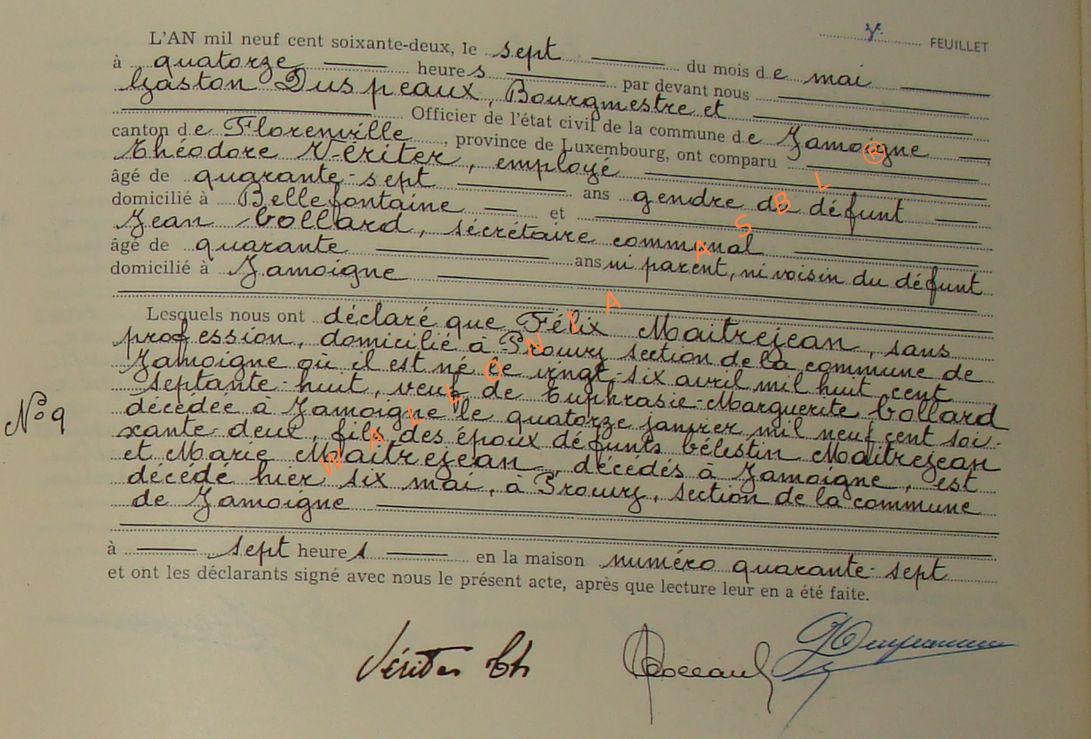 L'AN mil neuf cent soixante-deux, le sept du mois de mai FEUILLET
à quatorze heures par devant nous
Gaston Duspeaux, Bourgmestre et
Officier de l'état civil de la commune de Jamoigne
canton de Florenville, province de Luxembourg, ont comparu
Théodore Vériter, employé
âgé de quarante-sept ans gendre du défunt
domicilié à Bellefontaine et
Jean Collard, sécrétaire communal
âgé de quarante ans ni parent, ni voisin du défunt
domicilié à Jamoigne
Lesquels nous ont déclaré que Félix Maitrejean, sans
profession, domicilié à Prouvy section de la commune de
Jamoigne où il est né le vingt-six avril mil huit cent
septante-huit, veuf de Euphrasie-Marguerite Collard
N° 9 décédée à Jamoigne le quatorze janvier mil neuf cent soi-
xante-deux, fils des époux défunts Célestin Maitrejean
et Marie Maitrejean, décédés à Jamoigne, est
décédé hier six mai, à Prouvy, section de la commune
de Jamoigne
à sept heures en la maison numéro quarante-sept
et ont les déclarants signé avec nous le présent acte, après que lecture leur en a été faite.
Vériter Th
WALLONIA ASBL ®